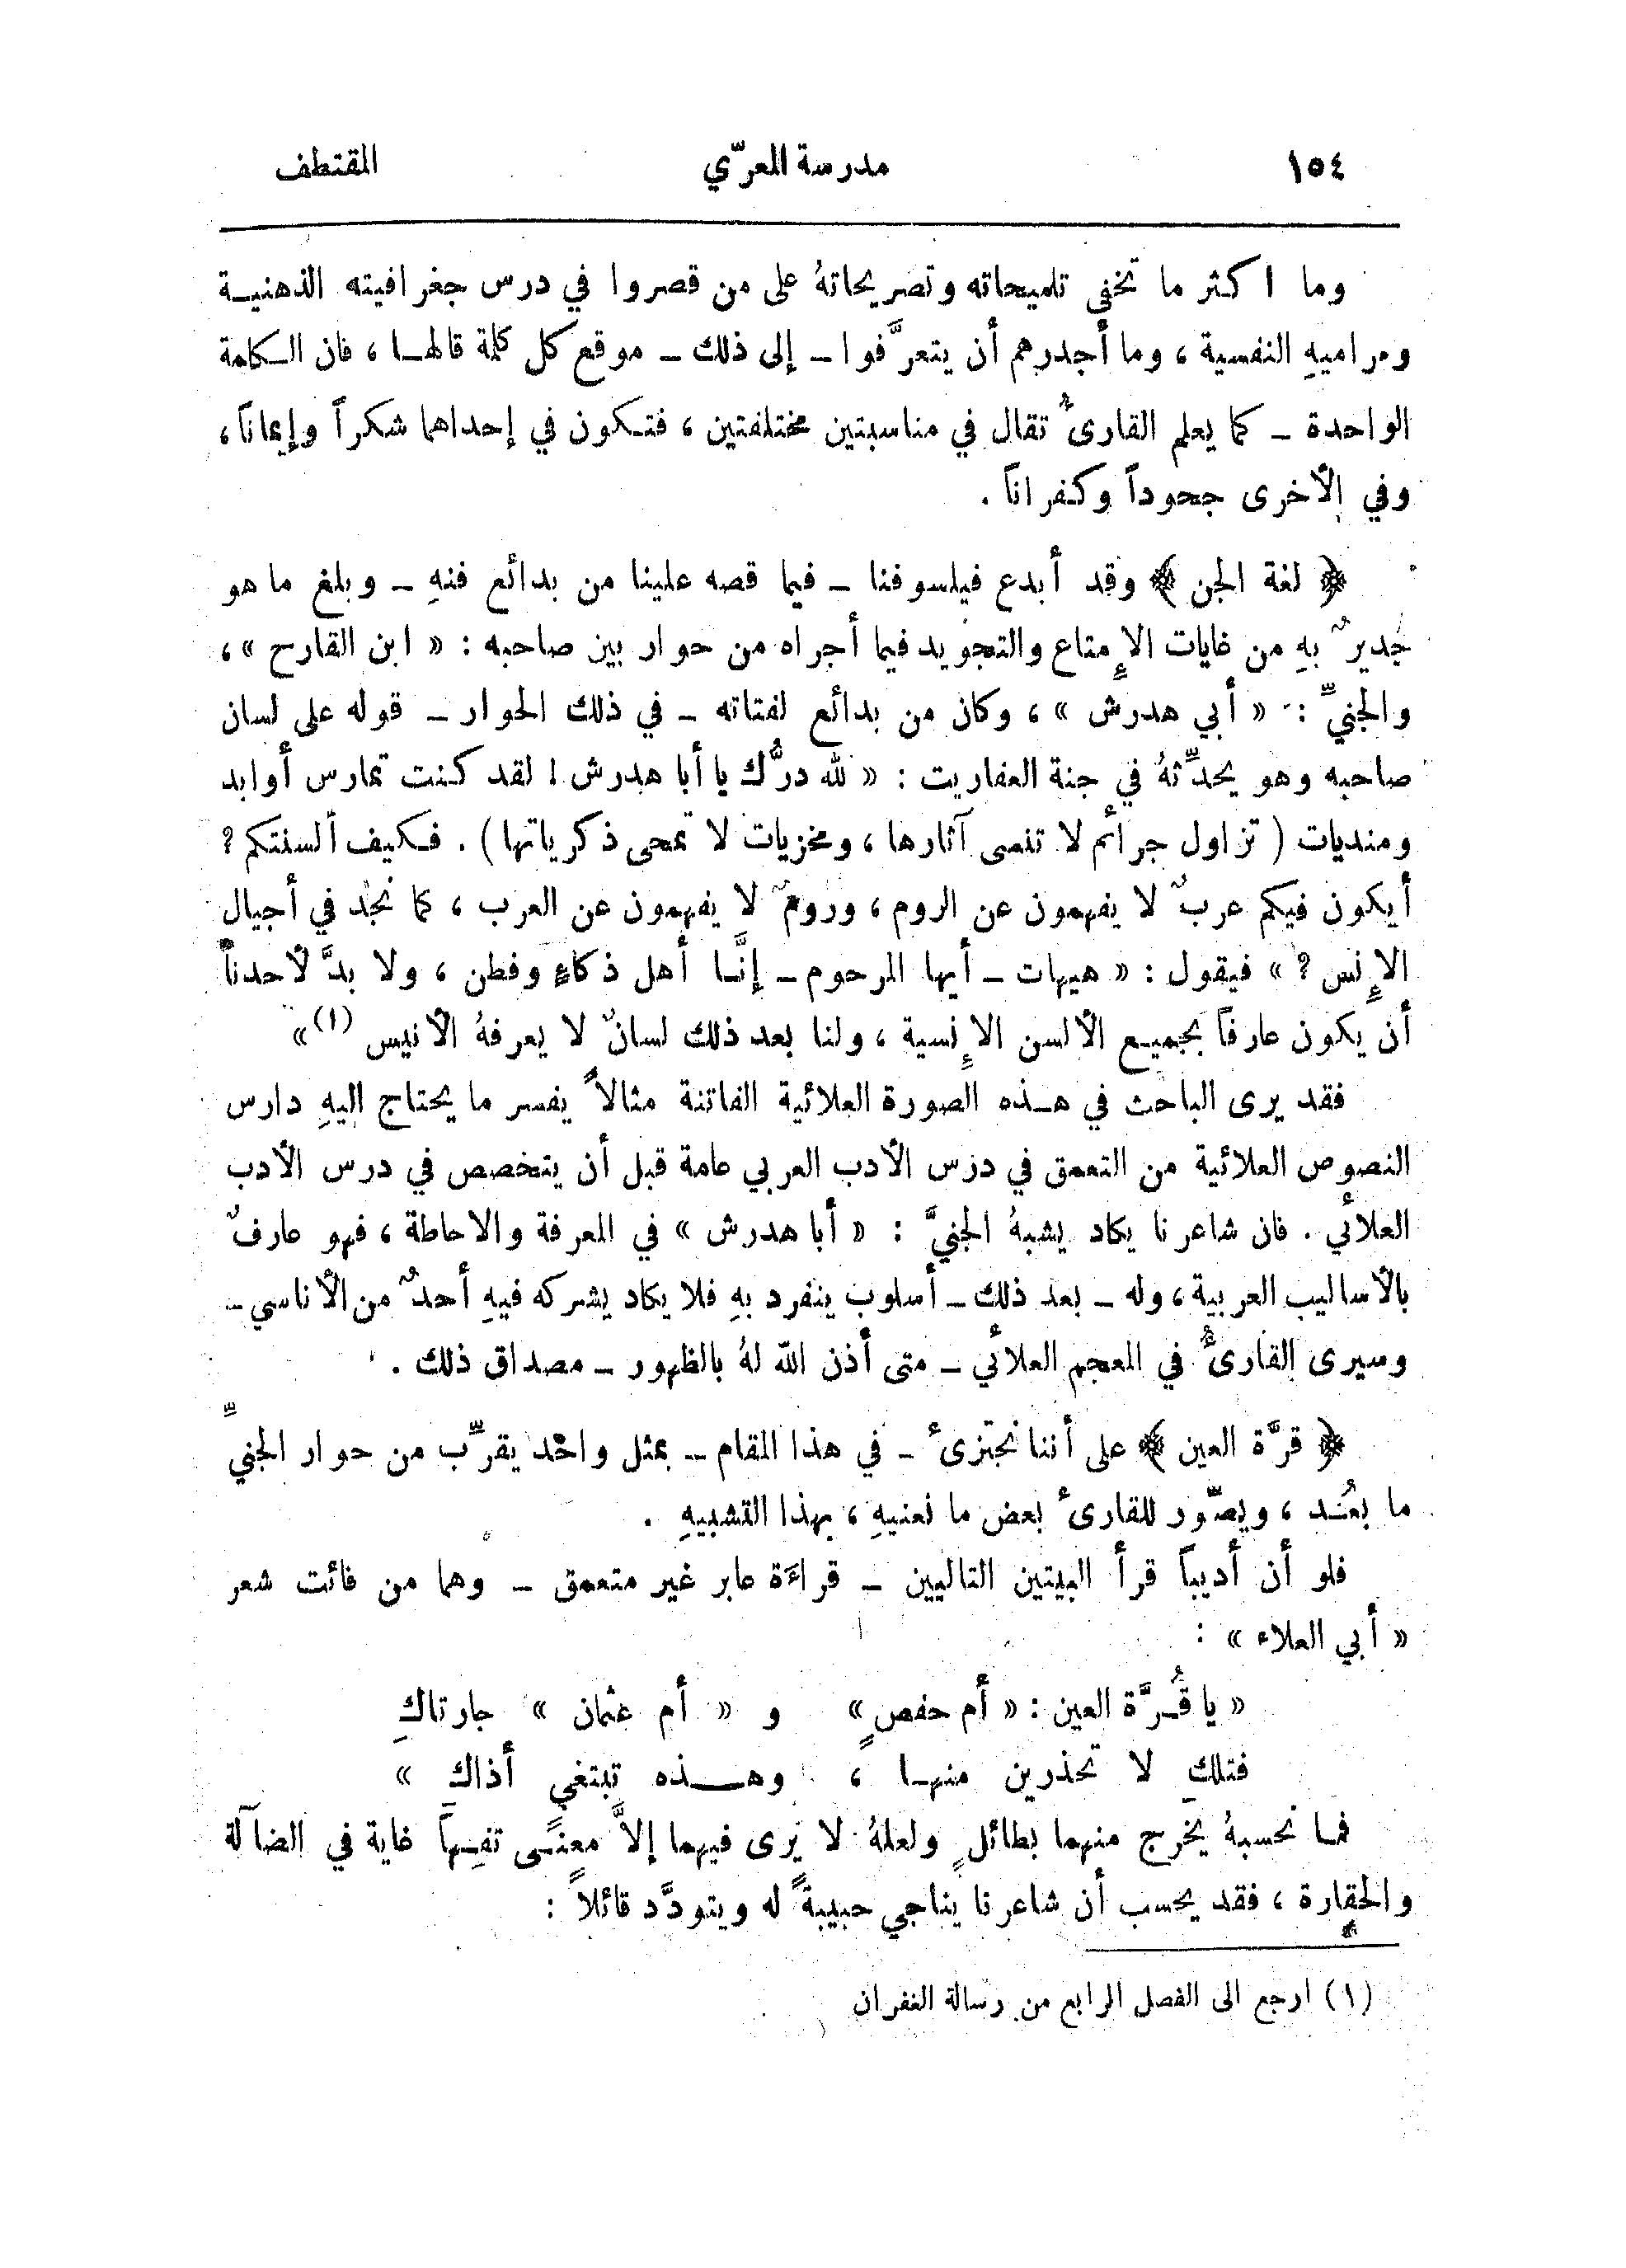 ١٥٤ مدرسة المعرّي المقتطف
وما اكثر ما تخفى تلميحاته وتصريحاتهُ على من قصروا في درس جغرافيته الذهنيـة
ومراميهِ النفسية ، وما أجدرهم أن يتعرَّفوا ــ إلى ذلك ــ موقع كل كلمة قالهـا ، فان الكلمة
الواحدة ــ كما يعلم القارىُٔ تقال في مناسبتين مختلفتين ، فتكون في إحداهما شكراً وإيماناً ،
وفي الأخرى جحوداً وكفراناً .
﴿ لغة الجن ﴾ وقد أبدع فيلسوفنا ــ فيما قصه علينا من بدائع فنهِ ــ وبلغ ما هو
جديرٌ بهِ من غايات الإمتاع والتجويد فيما أجراه من حوار بين صاحبه : « ابن القارح » ،
والجنيِّ : « أبي هدرش » ، وكان من بدائع لفتاته ــ في ذلك الحوار ــ قوله على لسان
صاحبه وهو يحدِّثهُ في جنة العفاريت : « لله درُّك يا أبا هدرش ! لقد كنت تمارس أوابد
ومنديات ( تزاول جرائم لا تنسى آثارها ، ومخزيات لا تمحى ذكرياتها ) . فكيف ألسنتكم ؟
أيكون فيكم عربٌ لا يفهمون عن الروم ، ورومٌ لا يفهمون عن العرب ، كما نجد في أجيال
الإنس ؟ » فيقول : « هيهات ــ أيها المرحوم ــ إنَّـا أهل ذكاءٍ وفطن ، ولا بدَّ لأحدنا
أن يكون عارفاً بجميـع الألسن الإنسية ، ولنا بعد ذلك لسانٌ لا يعرفهُ الأنيس (١) »
فقد يرى الباحث في هـذه الصورة العلائية الفاتنة مثالاً يفسر ما يحتاج اليهِ دارس
النصوص العلائية من التعمق في درس الأدب العربي عامة قبل أن يتخصص في درس الأدب
العلائي . فان شاعرنا يكاد يشبهُ الجنيَّ : « أبا هدرش » في المعرفة والاحاطة ، فهو عارفٌ
بالأساليب العربية ، وله ــ بعد ذلك ــ أسلوب ينفرد بهِ فلا يكاد يشركه فيهِ أحدٌ من الأناسي ــ
وسيرى القارىُٔ في المعجم العلائي ــ متى أذن الله لهُ بالظهور ــ مصداق ذلك .
﴿ قرَّة العين ﴾ على أننا نجتزئ ــ في هذا المقام ــ بمثل واحد يقرِّب من حوار الجنيِّ
ما بعُـد ، ويصّور للقارئ بعض ما نعنيهِ ، بهذا التشبيهِ .
فلو أن أديباً قرأ البيتين التاليين ــ قراءَة عابر غير متعمق ــ وهما من فائت شعر
« أبي العلاء » :
« يا قُـرَّة العين : « أم حفصٍ » و « أم عثمان » جارتاكِ
فتلكِ لا تحذرين منهـا ، وهـــذه تبتغي أذاكِ »
فمـا نحسبهُ يخرج منهما بطائلٍ ولعلهُ لا يَرى فيهما إلاَّ معنـًى تفـِهاً غاية في الضآلة
والحقارة ، فقد يحسب أن شاعرنا يناجي حبيبةً له ويتودَّد قائلاً :
(١) ارجع الى الفصل الرابع من رسالة الغفران